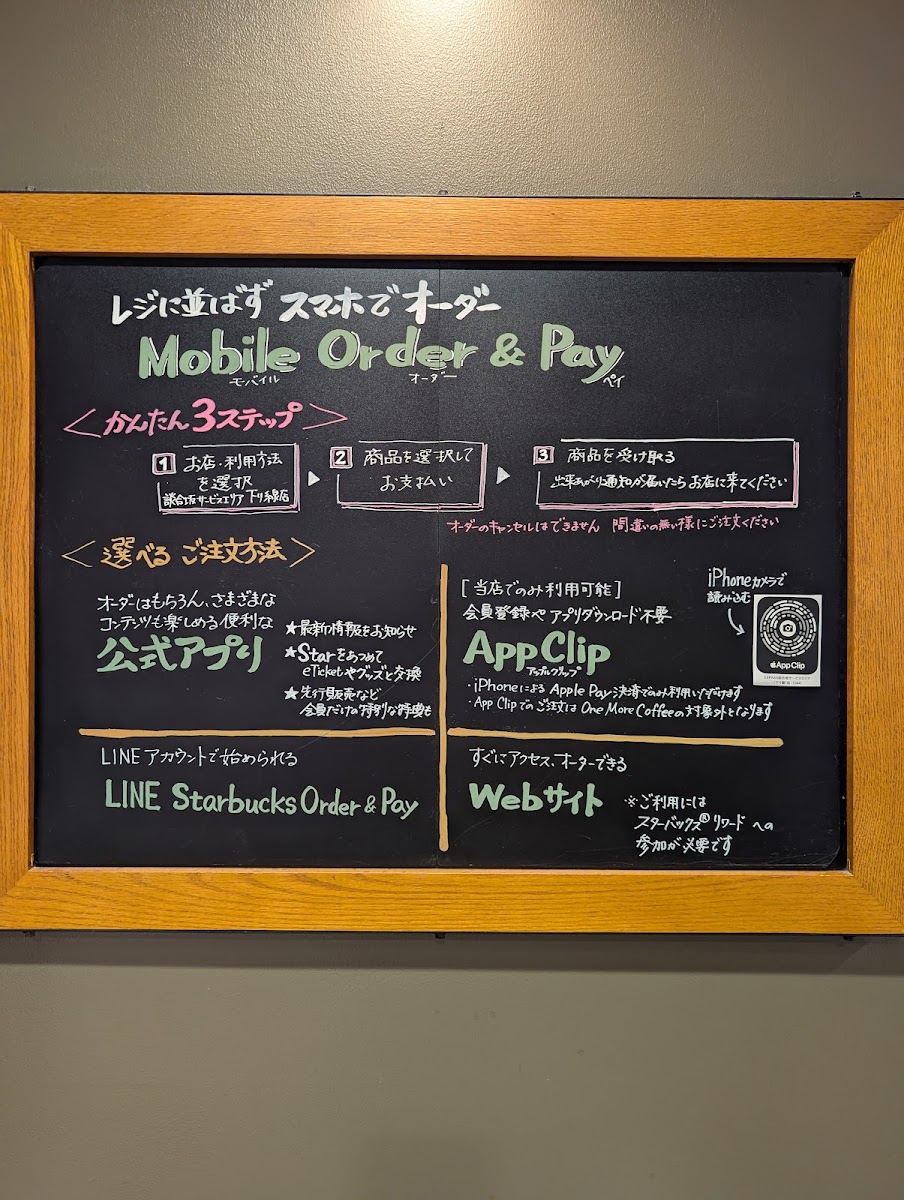 レジに並ばず スマホでオーダー
Mobile Order & Pay
モバイル オーダー ペイ
<かんたん3ステップ>
1 お店・利用方法
を選択
談合坂サービスエリア 下り線店
2 商品を選択して
お支払い
3 商品を受け取る
出来あがり通知が届いたらお店に来てください
オーダーのキャンセルはできません 間違いの無い様にご注文ください
<選べる ご注文方法>
オーダーはもちろん、さまざまな
コンテンツも楽しめる便利な
公式アプリ
★最新の情報をお知らせ
★Starをあつめて
eTicketやグッズと交換
★先行販売など
会員だけの特別な特典も
[当店でのみ利用可能]
会員登録や アプリダウンロード不要
App Clip
アップルクリップ
・iPhoneによる Apple Pay決済でのみ利用いただけます
・App Clipでのご注文は One More Coffeeの対象外となります
iPhoneカメラで
読み込む
App Clip
LINE アカウントで始められる
LINE Starbucks Order & Pay
すぐにアクセス、オーダーできる
Webサイト
※ご利用には
スターバックス®リワード への
参加が必要です